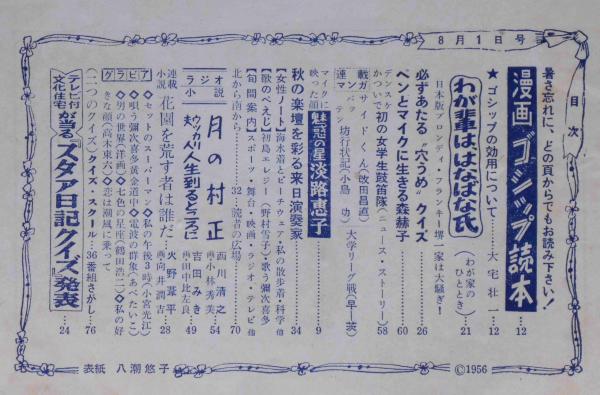 8月1日号
目次
暑さ忘れに、どの頁からでもお読み下さい!
漫画ゴシップ読本 12
★ゴシップの効用について 大宅壮一 12
わが輩ははなばな氏
(わが家のひととき) 21
日本版ブロンディ・フランキー堺一家は大騒ぎ!
必ずあたる〝穴うめ〟クイズ 26
ペンとマイクに生きる森赫子 60
かつていで初の女学生鼓笛隊(ニュース・ストーリー) 58
デンスケ
連載マンガ
サイドくん(改田昌直) 大学リーグ戦(早一英)
坊行状記(小島功)
マイクに映った顔
魅惑の星淡路恵子 9
秋の楽壇を彩る来日演奏家 34
【女性ノート】海水着とビーチウェア・私の散歩着・科学 他
【歌のペえじ】初島エレジー(野村雪子)・歌う彌次喜多 他
【旬間案内】スポーツ・舞台・映画・ラジオ・テレビ 他
北から南から 32 読者の広場 70
ラジオ小説
月の村正 西川清之 画・小林秀美 54
ウッカリ夫人 人生到るところに 吉田みき 画・田中比左良 49
連載小説 花園を荒す者は誰だ 火野葦平 画・向井潤吉 28
グラビア
◆セットのスーパーマン◆私の午後3時(小宮光江)
◆唄う彌次喜多黄金道中◆電波の群象(あべ・たいこ)
◆男の世界(洋画)◆七色の星座(鶴田浩二)◆私の好きな顔(高木東六)◆恋は潮風に乗って
(二つのクイズ)クイズ・スクール 36 番組さがし 76
テレビ付文化住宅が当る『スタア日記クイズ』発表 24
表紙 八潮悠子
©1956